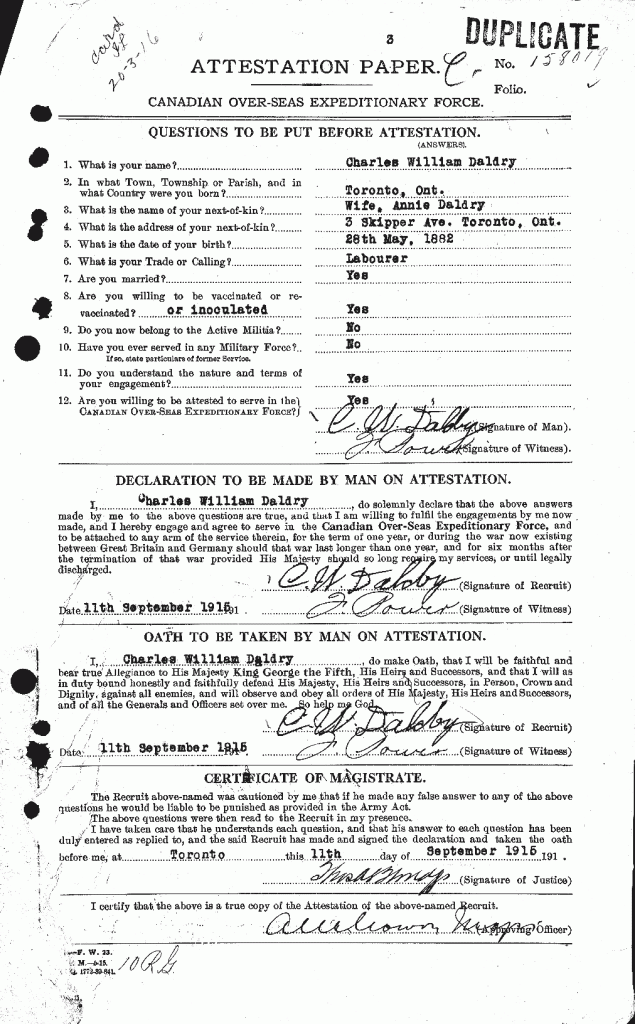 card
20-3-16
3
DUPLICATE
ATTESTATION PAPER.
No. 158019
Folio.
CANADIAN OVER-SEAS EXPEDITIONARY FORCE.
QUESTIONS TO BE PUT BEFORE ATTESTATION.
(ANSWERS).
1. What is your name? Charles William Daldry
2. In what Town, Township or Parish, and in
what Country were you born? Toronto, Ont.
3. What is the name of your next-of-kin? Wife, Annie Daldry
4. What is the address of your next-of-kin? 3 Skipper Ave. Toronto, Ont.
5. What is the date of your birth? 28th May, 1882
6. What is your Trade or Calling? Labourer
7. Are you married? Yes
8. Are you willing to be vaccinated or re-
vaccinated? or inoculated Yes
9. Do you now belong to the Active Militia? No
10. Have you ever served in any Military Force? No
If so, state particulars of former Service.
11. Do you understand the nature and terms of
your engagement? Yes
12. Are you willing to be attested to serve in the Yes
CANADIAN OVER-SEAS EXPEDITIONARY FORCE?
C. W. Dalby (Signature of Man).
J. Power (Signature of Witness).
DECLARATION TO BE MADE BY MAN ON ATTESTATION.
I, Charles William Daldry, do solemnly declare that the above answers
made by me to the above questions are true, and that I am willing to fulfil the engagements by me now
made, and I hereby engage and agree to serve in the Canadian Over-Seas Expeditionary Force, and
to be attached to any arm of the service therein, for the term of one year, or during the war now existing
between Great Britain and Germany should that war last longer than one year, and for six months after
the termination of that war provided His Majesty should so long require my services, or until legally
discharged.
C. W. Dalby (Signature of Recruit)
Date 11th September 1915 191 . J. Power (Signature of Witness)
OATH TO BE TAKEN BY MAN ON ATTESTATION.
I, Charles William Daldry, do make Oath, that I will be faithful and
bear true Allegiance to His Majesty King George the Fifth, His Heirs and Successors, and that I will as
in duty bound honestly and faithfully defend His Majesty, His Heirs and Successors, in Person, Crown and
Dignity, against all enemies, and will observe and obey all orders of His Majesty, His Heirs and Successors,
and of all the Generals and Officers set over me. So help me God.
C. W. Dalby (Signature of Recruit)
Date 11th September 1915 J. Power (Signature of Witness)
CERTIFICATE OF MAGISTRATE.
The Recruit above-named was cautioned by me that if he made any false answer to any of the above
questions he would be liable to be punished as provided in the Army Act.
The above questions were then read to the Recruit in my presence.
I have taken care that he understands each question, and that his answer to each question has been
duly entered as replied to, and the said Recruit has made and signed the declaration and taken the oath
before me, at Toronto this 11th day of September 1915 191 .
(Signature of Justice)
I certify that the above is a true copy of the Attestation of the above-named Recruit.
(Approving Officer)
F. W. 23.
M.—9-15.
1772-39-841.
10 R.G.